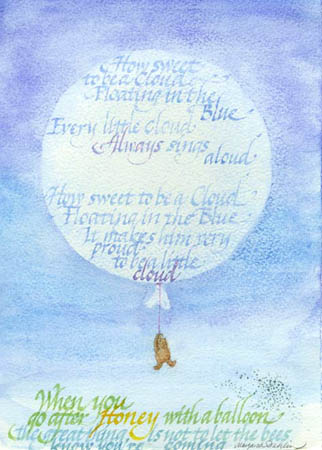 How sweet
to be a Cloud
Floating in the
Blue
Every little cloud
Always sings
aloud
How sweet to be a Cloud
Floating in the Blue
It makes him very
proud
to be a little
cloud
When you
go after Honey with a balloon
the great thing is not to let the bees
know you're coming